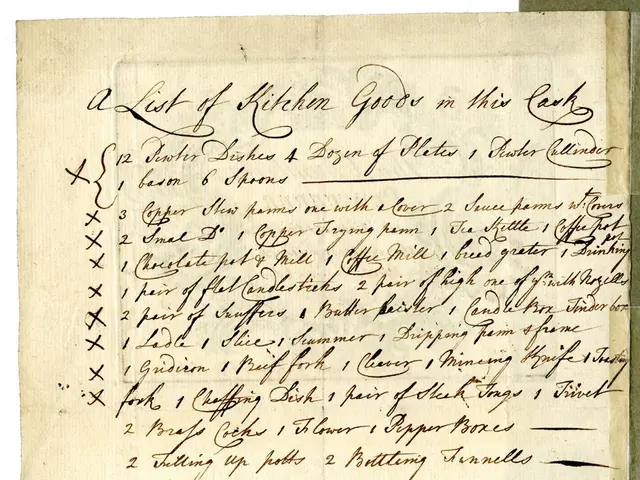 A List of Kitchen Goods in this Cask
12 Pewter Dishes 4 Dozen of Plates 1 Pewter Cullinder
1 bason 6 Spoons
3 Copper Stew panns one with a Cover 2 Sauce panns wt. Covers
2 Smal Do 1 Copper Frying pann 1 Tea Kettle 1 Coffee pot
1 Chocolate pot & Mill 1 Coffee Mill 1 breed grater 1 Drinking pot
1 pair of flat Candlesticks 2 pair of high one of ym. with Nozells
2 pair of Snuffers 1 Butter 1 Candle Box Tinder box
1 Ladle 1 Slice 1 Scummer 1 Dripping pann & frame
1 Gridiron 1 Beif fork 1 Cleaver 1 Mincing Knife 1 Toasting
fork 1 Chaffing Dish 1 pair of Steak Tongs 1 Trivet
2 Brass Cocks 1 Flower 1 Pepper Boxes
2 Filling up potts 2 Bottling Funnells